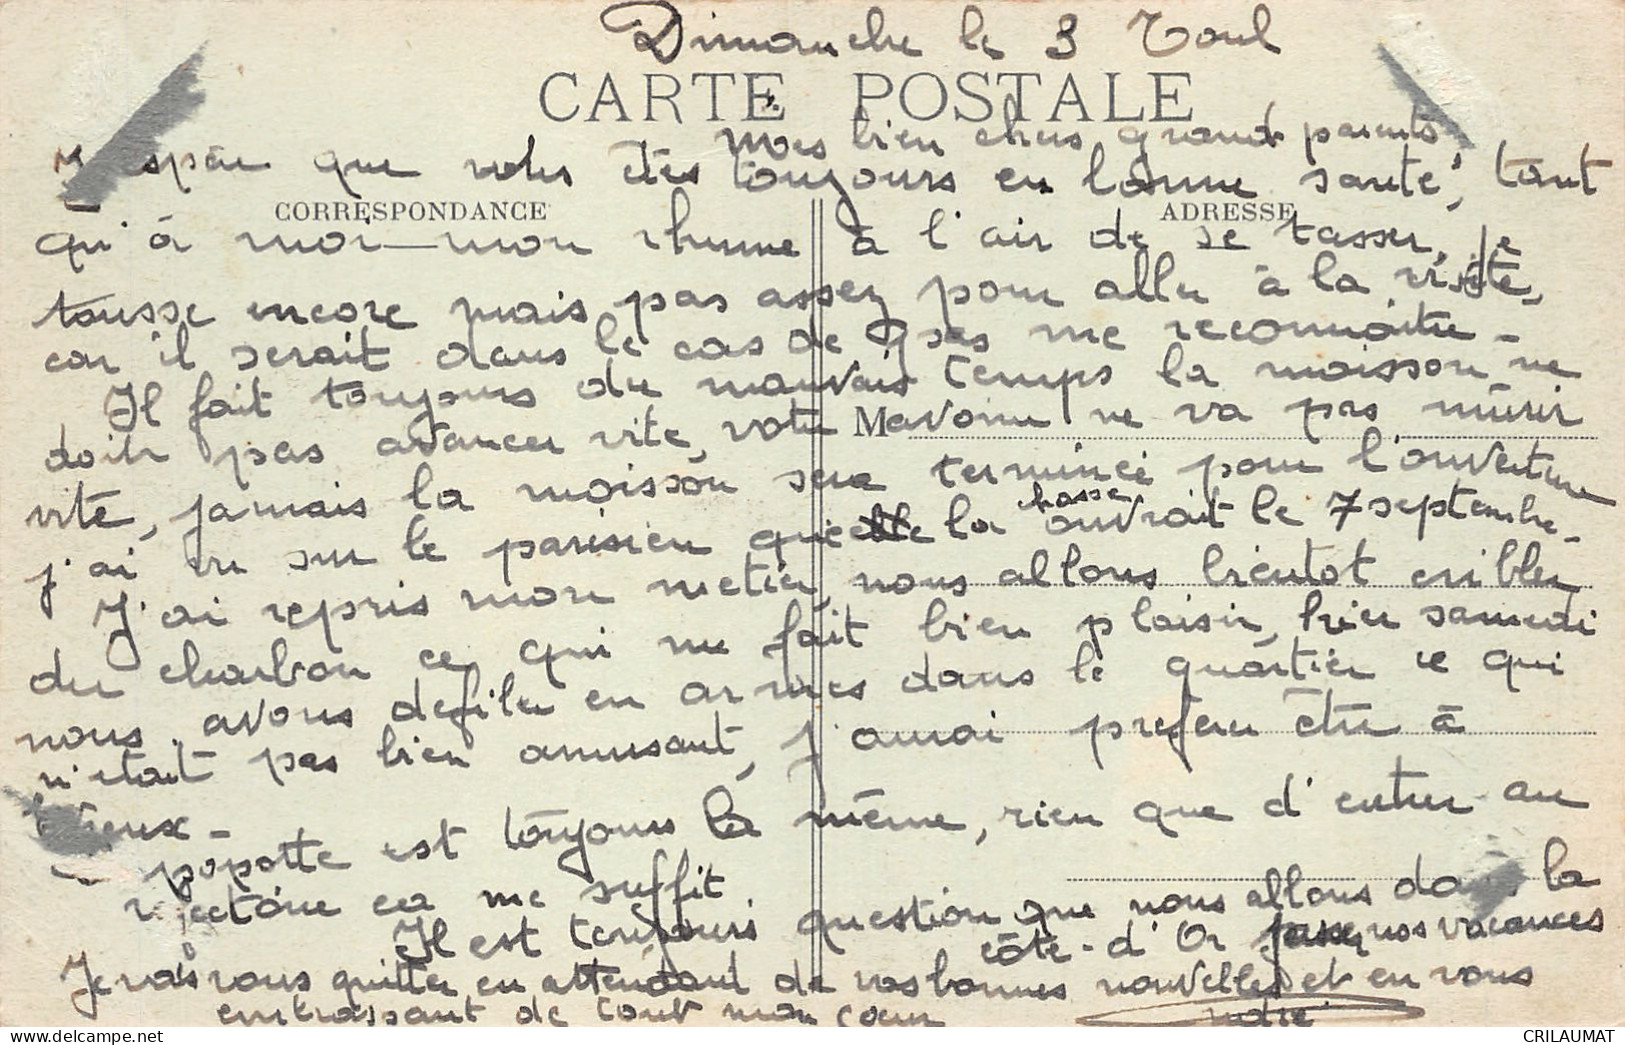 Dimanche le 3 Toul
CARTE POSTALE
Mes bien chers grands parents
J' espère que vous êtes toujours en bonne santé, tant
CORRESPONDANCE
ADRESSE
qu'à moi mon rhume à l'air de se tasser, je
tousse encore mais pas assez pour aller à la visite,
car il serait dans le cas de pas me reconnaitre -
Il fait toujours du mauvais temps la moisson ne
doit pas avancer vite, votre avoine ne va pas mûrir
M
vite, jamais la moisson sera terminée pour l'ouverture
j'ai vu sur le parisien que la chasse ouvrait le 7 septembre -
J'ai repris mon metier, nous allons bientot cribler
du charbon ce qui me fait bien plaisir, hier samedi
nous avons defiler en armes dans le quartier ce qui
n'etait pas bien amusant, j'aurai preferer être à
popotte est toujours la même, rien que d'entrer au
refectoire ca me suffit
Il est toujours question que nous allons dans la
côte-d'Or passer nos vacances
Je vais vous quitter en attendant de vos bonnes nouvelles et en vous
embrassant de tout mon coeur
CRILAUMAT